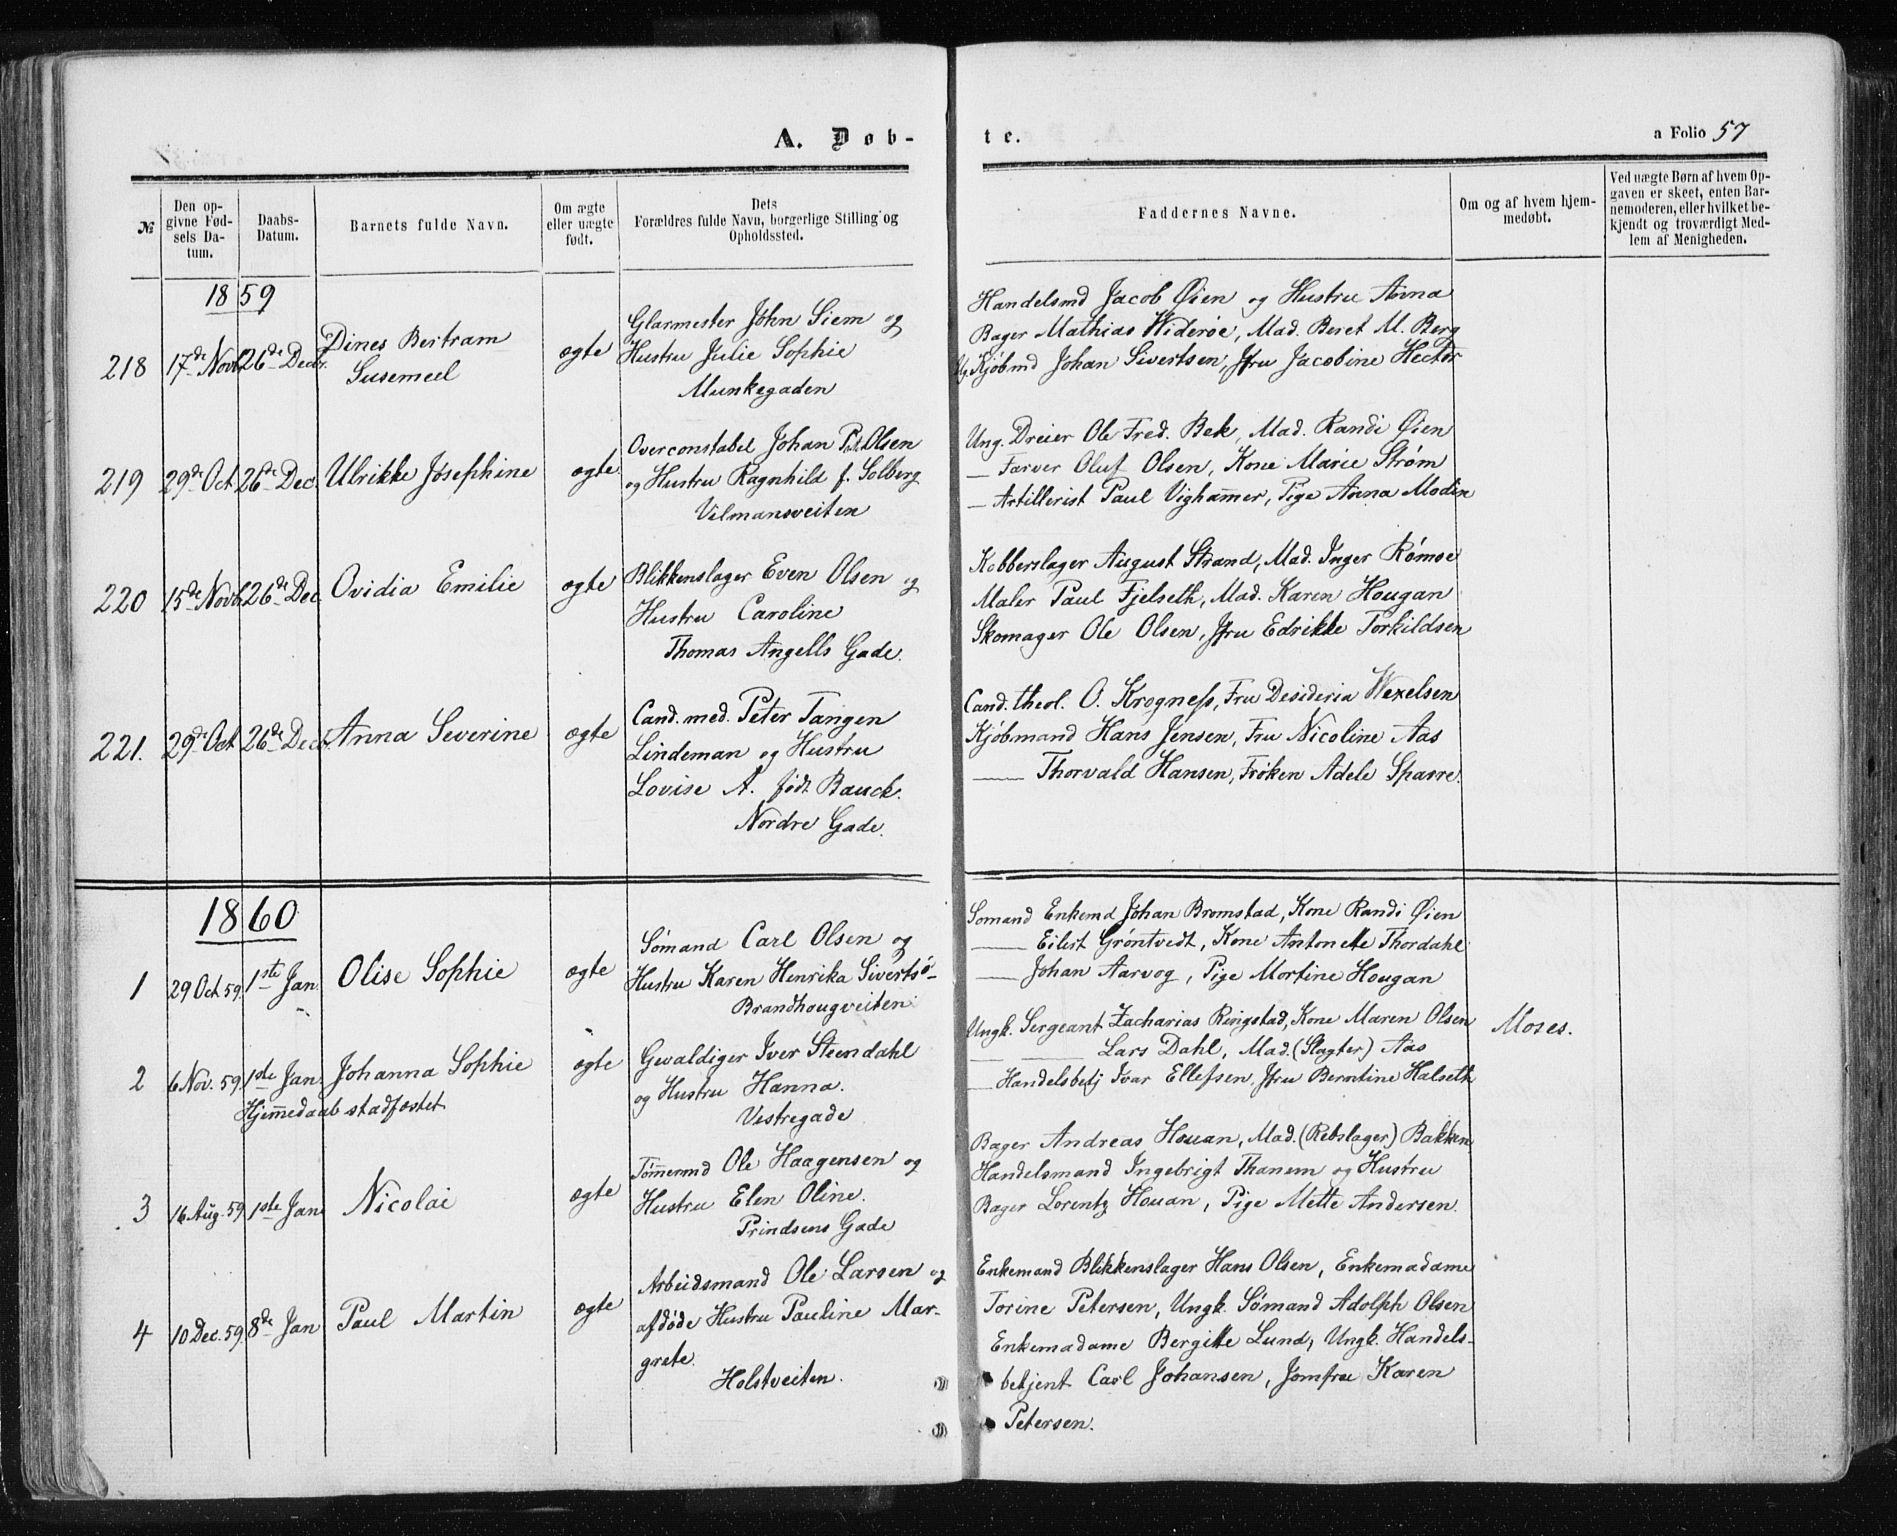 A. Døb-
te.
a Folio 57
№
Den op-
givne Fød-
sels Da-
tum.
Daabs-
Datum.
Barnets fulde Navn.
Om ægte
eller uægte
født.
Dets
Forældres fulde Navn, borgerlige Stilling og
Opholdssted.
Faddernes Navne.
Om og af hvem hjem-
medøbt.
Ved uægte Børn af hvem Op-
gaven er skeet, enten Bar-
nemoderen, eller hvilket be-
kjendt og troværdigt Med-
lem af Menigheden.
1859
218 17de Novbr. 26de Decbr.
Dines Bertram
Susemeel
ægte
Glarmester John Siem og
Hustru Julie Sophie
Munkegaden
Handelsmd Jacob Øien og Hustru Anna
Bager Mathias Widerøe, Mad. Beret M. Berg
Ug. Kjøbmd Johan Sivertsen, Jfru Jacobine Hector
219 29de Oct. 26de Dec. Ulrikke Josephine ægte
Overconstabel Johan Pet. Olsen
og Hustru Ragnhild f. Solberg
Vilmansveiten
Ung. Dreier Ole Fred. Bek, Mad. Randi Øien
— Farver Oluf Olsen, Kone Marie Strøm
— Artillerist Paul Vighammer, Pige Anna Modin
220 15de Novb. 26de Dec. Ovidia Emilie ægte
Blikkenslager Even Olsen og
Hustru Caroline
Thomas Angells Gade.
Kobberslager August Strand, Mad. Inger Rømoe
Maler Paul Fjelseth, Mad. Karen Hougan
Skomager Ole Olsen, Jfru Edrikke Torkildsen
221. 29de Oct. 26de Decbr. Anna Severine ægte
Cand. med. Peter Tangen
Lindeman og Hustru
Lovise A. født Bauck.
Nordre Gade.
Cand. theol. O. Krogness, Fru Desideria Wexelsen
Kjøbmand Hans Jensen, Fru Nicoline Aas
— Thorvald Hansen, Frøken Adele Sparre.
1860
1 29 Oct 59. 1ste Jan. Olise Sophie ægte
Sømand Carl Olsen og
Hustru Karen Henrika Sivertsø-
Brandhougveiten
Sømand Enkemd Johan Bromstad, Kone Randi Øien
— Eilert Grøntvedt, Kone Antonette Thordahl
— Johan Aarvog, Pige Mortine Hougan
2 6 Nov. 59. 1ste Jan. Johanna Sophie ægte
Hjemmedaab stadfæstet
Gevaldiger Iver Steendahl
og Hustru Hanna.
Vestregade
Ungk. Sergeant Zacharias Ringstad, Kone Maren Olsen
— — Lars Dahl, Mad. (Slagter) Aas
— Handelsbetj Ivar Ellefsen, Jfru Berntine Halseth
Moses.
3 16 Aug. 59 1ste Jan. Nicolai ægte
Tømmermd Ole Haagensen og
Hustru Elen Oline.
Prindsens Gade
Bager Andreas Houan, Mad. (Rebslager) Bakken
Handelsmand Ingebrigt Thanem og Hustru
Bager Lorentz Houan, Pige Mette Andersen.
4 10 Dec. 59. 8de Jan Paul Martin ægte
Arbeidsmand Ole Larsen og
afdøde Hustru Pauline Mar-
grete.
Holstveiten.
Enkemand Blikkenslager Hans Olsen, Enkemadame
Torine Petersen, Ungk. Sømand Adolph Olsen
Enkemadame Bergitte Lund, Ungk. Handels-
betjent Carl Johansen, Jomfru Karen
Petersen.